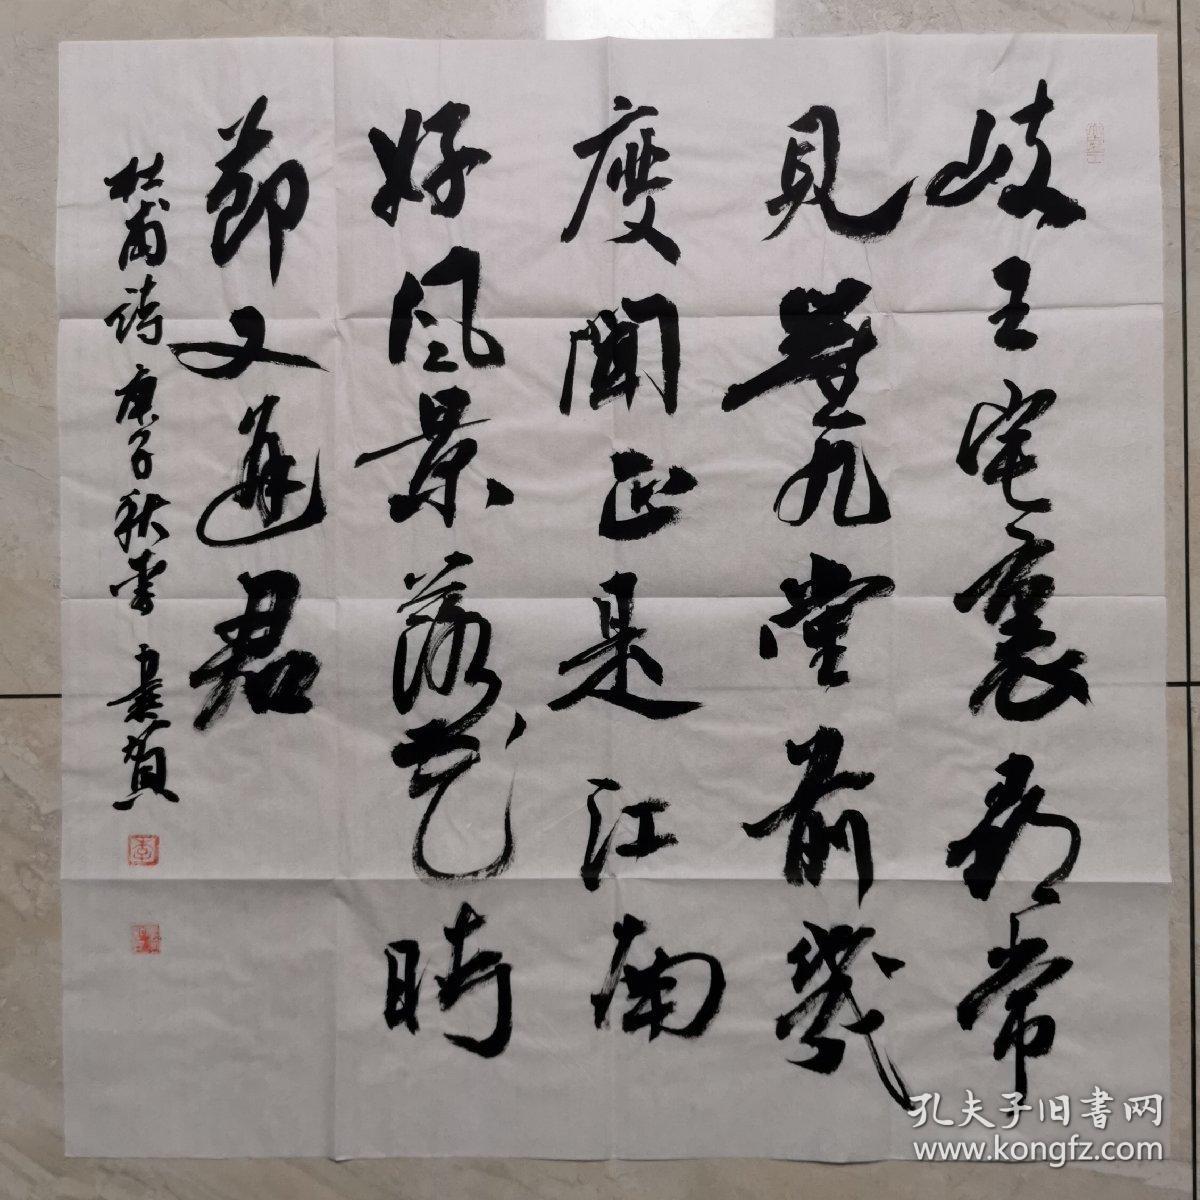 岐王宅裏尋常
見崔九堂前幾
度聞正是江南
好風景落花時
節又逢君
杜甫詩 庚子秋 賀
孔夫子旧書网
www.kongfz.com